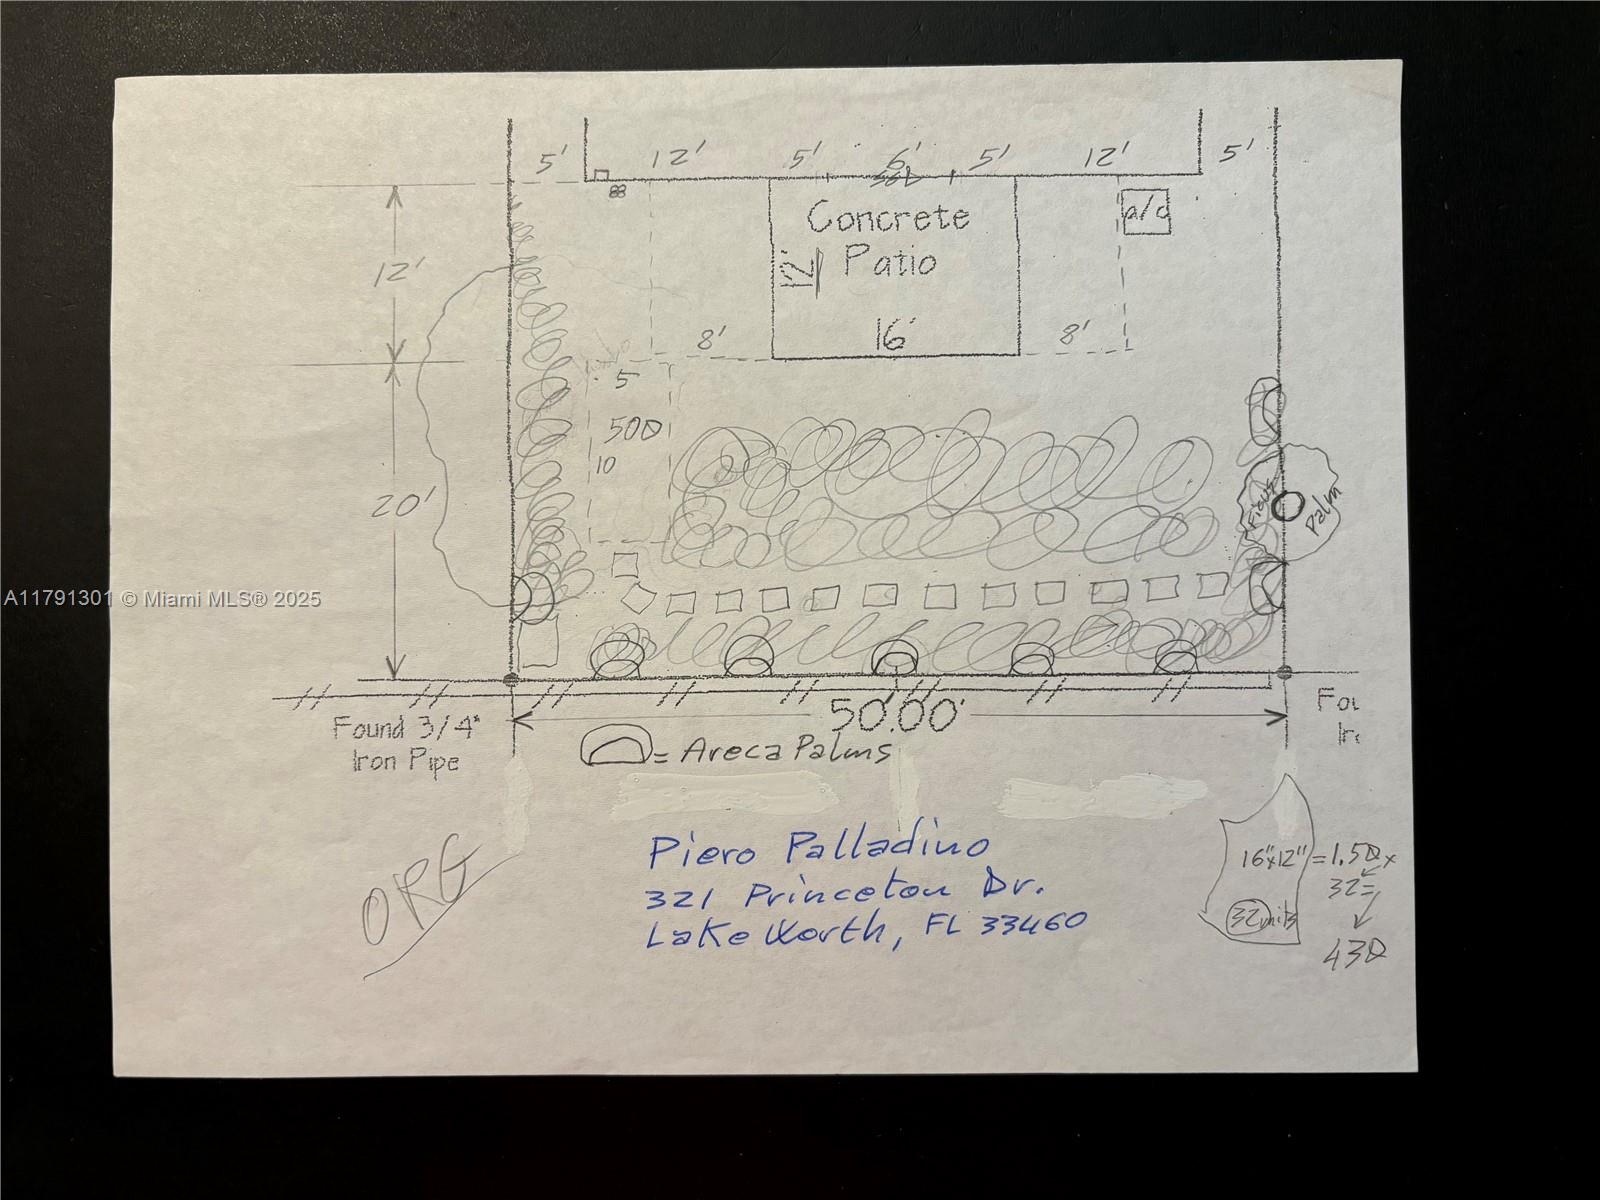 5' 12' 5' 6' 5' 12' 5'
a/c
Concrete
12' Patio
12'
16'
8' 8'
5
50
10
20'
Ficus
Palm
A11791301 © Miami MLS® 2025
50.00'
Found 3/4"
Iron Pipe
Fou
Irc
= Areca Palms
ORG
Piero Palladino
321 Princeton Dr.
Lake Worth, FL 33460
16"x12" = 1.5 x
32 =
32 units
43